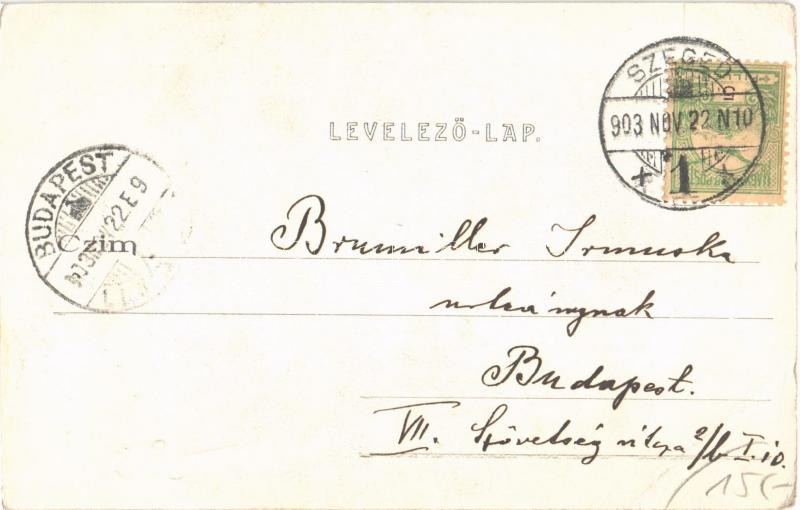 LEVELEZŐ-LAP.
SZEGED
903 NOV 22 N10
1
5
BUDAPEST
903 22 E 9
Czim
Brumiller Irmuska
urleánynak
Budapest.
VII. Szövetség utcza 2/b I. 10.
150-